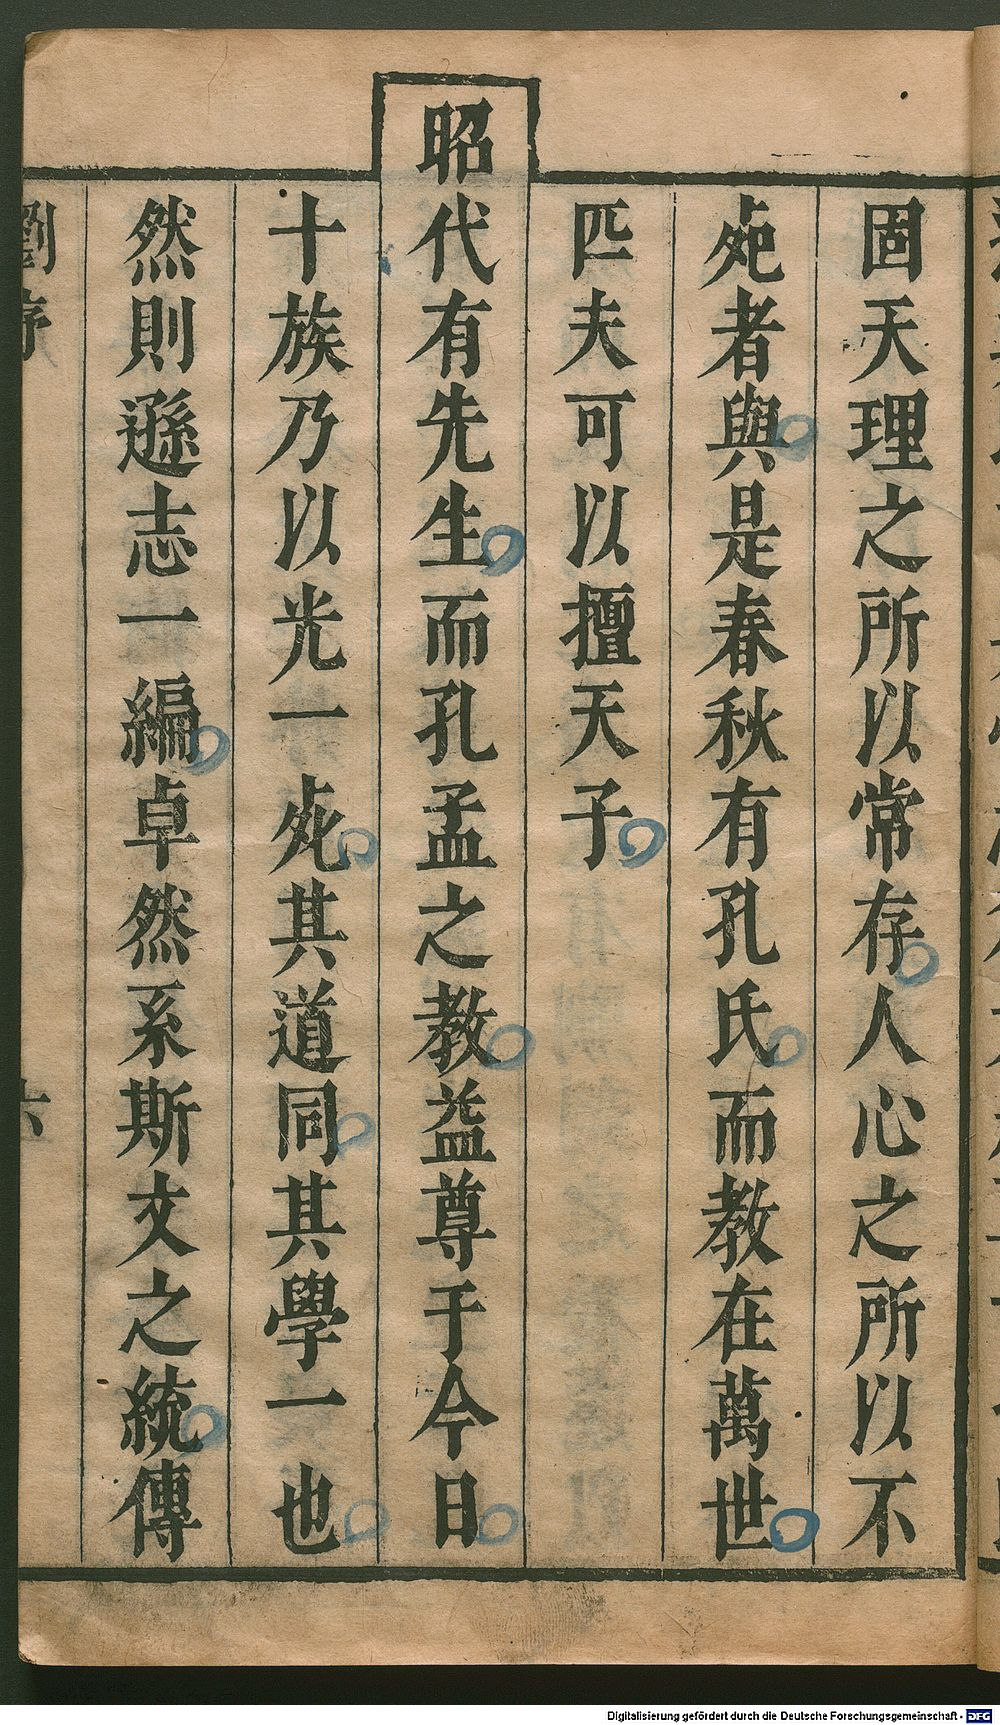 固天理之所以常存人心之所以不
死者與是春秋有孔氏而教在萬世
匹夫可以擅天子
昭代有先生而孔孟之教益尊于今日
十族乃以光一死其道同其學一也
然則遜志一編卓然系斯文之統傳
劉序
六
Digitalisierung gefördert durch die Deutsche Forschungsgemeinschaft - DFG